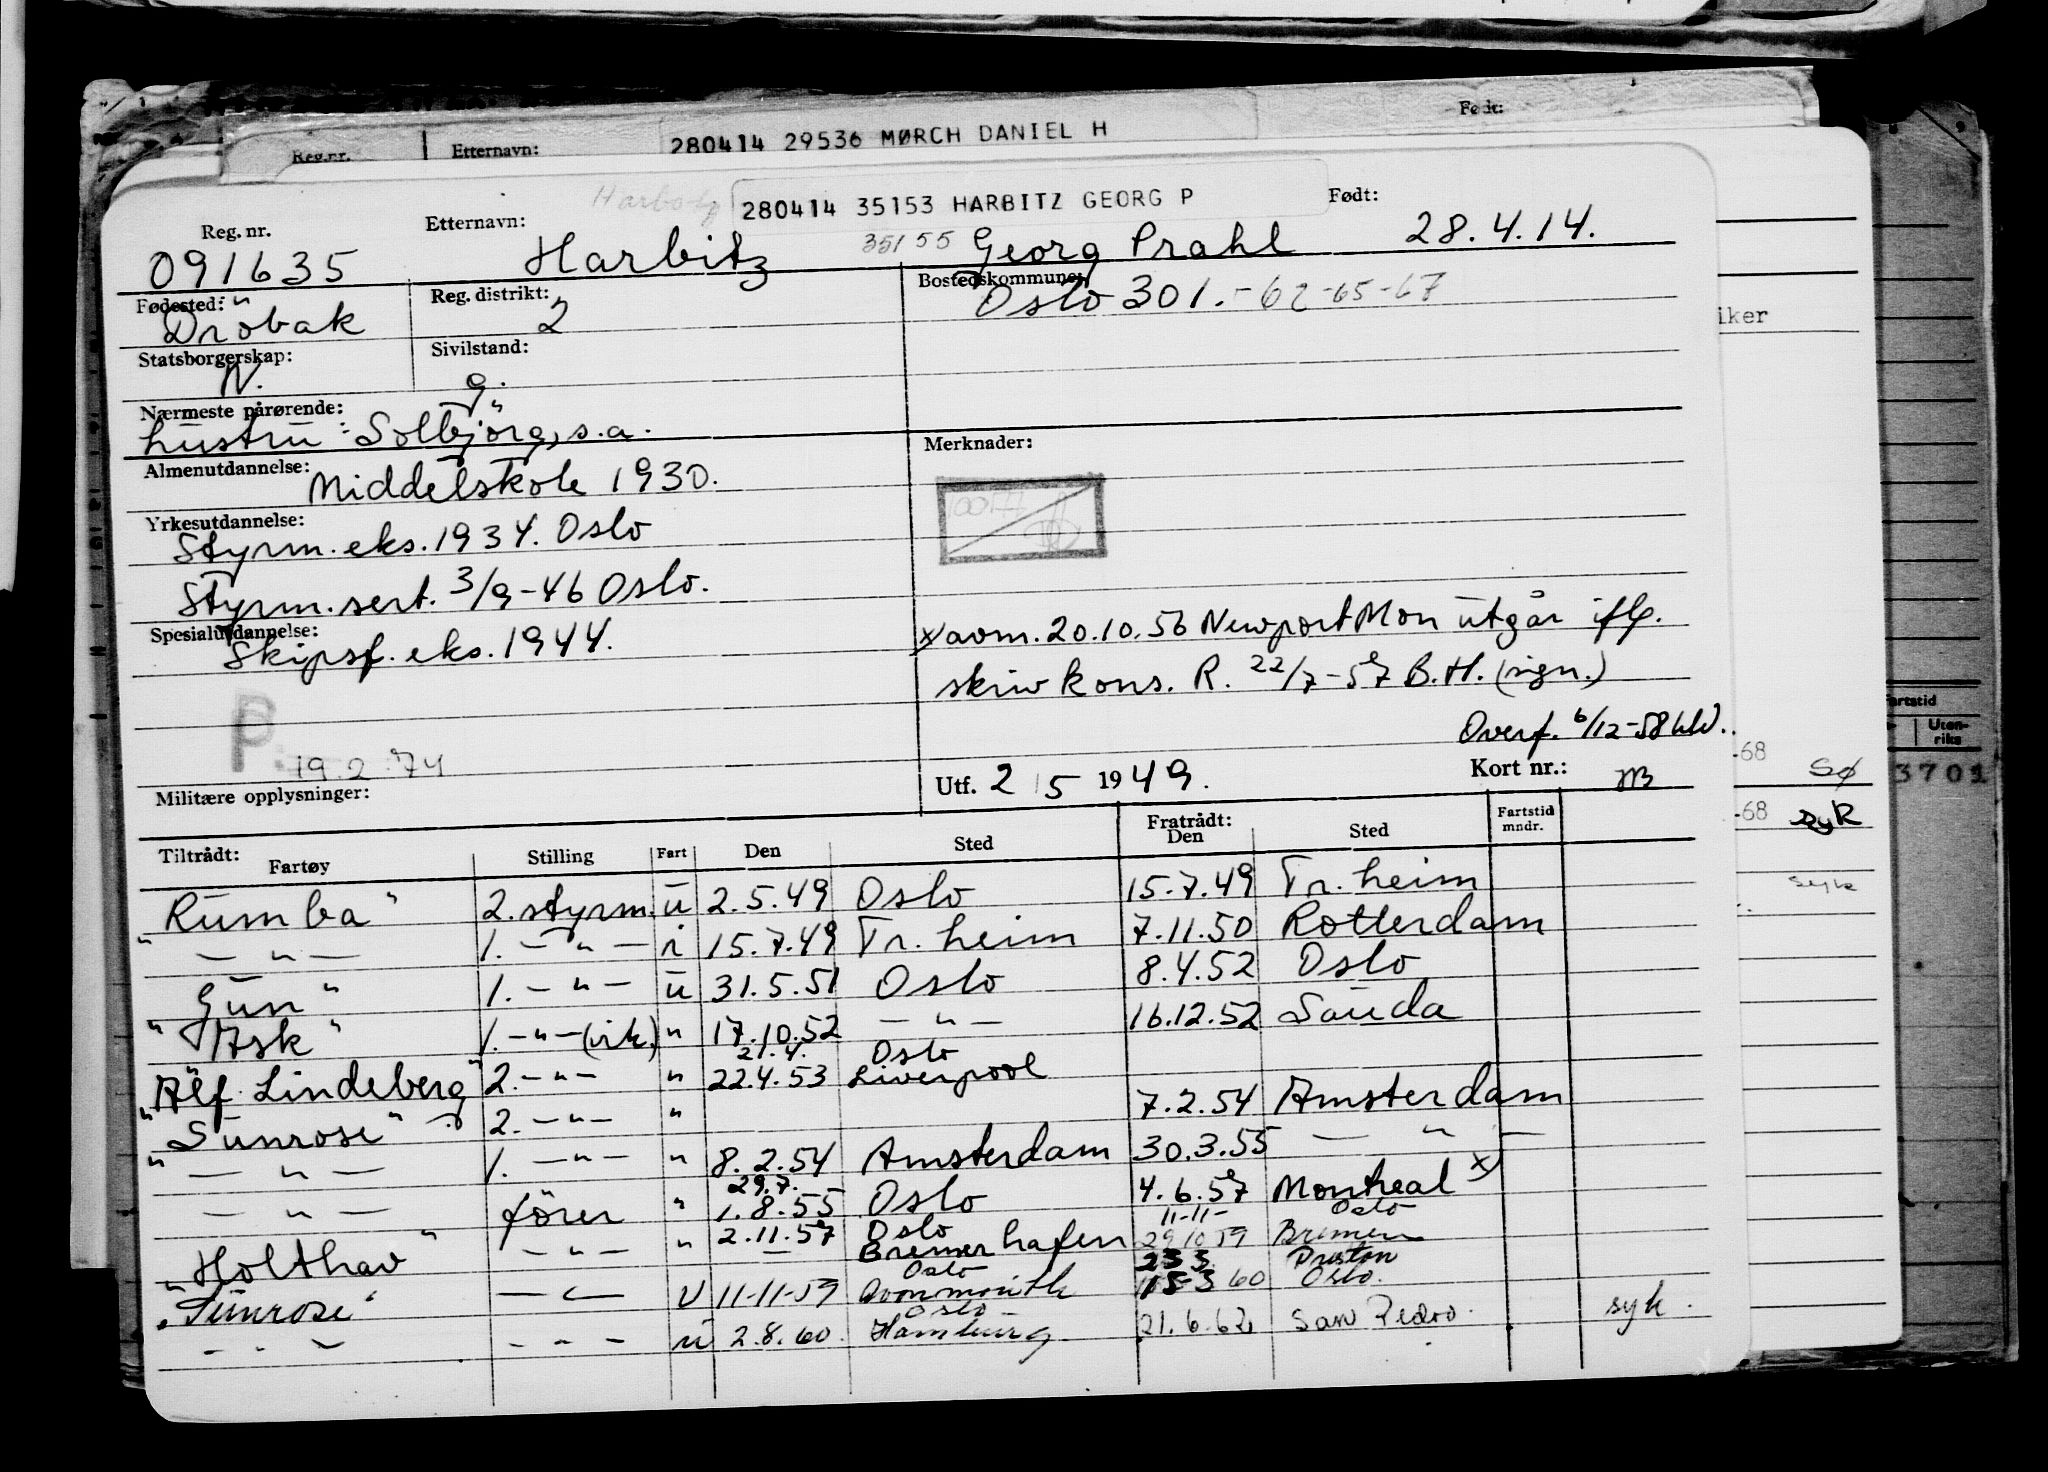 Født:
Reg.nr. Etternavn: 280414 29536 MØRCH DANIEL H
280414 35153 HARBITZ GEORG P
Reg. nr. Etternavn: Født:
091635 Harbitz 35155 Georg Prahl 28.4.14.
Fødested: Reg. distrikt: Bostedskommune:
Dröbak 2 Oslo 301.-62-65-67
iker
Statsborgerskap: Sivilstand:
N. g.
Nærmeste pårørende:
hustru: Solbjörg, s.a.
Merknader:
Almenutdannelse:
Middelskole 1930.
Yrkesutdannelse:
Styrm. eks. 1934. Oslo
Styrm. sert. 3/9-46 Oslo.
Spesialutdannelse:
Skipsf. eks. 1944.
x) avm. 20.10.56 Newport Mon utgår iflg.
skriv kons. R. 22/7-57 B.H. (sign.)
Overf. 6/12-58
P.
19.2.74
Utf. 2/5 1949. Kort nr.:
Militære opplysninger:
Fartstid
Uten-
riks
-68 SØ
3701
-68 syk
syk
Tiltrådt: Fratrådt:
Fartøy Stilling Fart Den Sted Den Sted Fartstid mndr.
"Rumba" 2. styrm. u 2.5.49 Oslo 15.7.49 Tr. heim
— " — 1. — " — i 15.7.49 Tr. heim 7.11.50 Rotterdam
"Gun" 1. — " — u 31.5.51 Oslo 8.4.52 Oslo
"Ask" 1. — " — (vik.) " 17.10.52 — " — 16.12.52 Sauda
21.4. Oslo
"Alf Lindeberg" 2. — " — " 22.4.53 Liverpool
"Sunrose" 2. — " — " 7.2.54 Amsterdam
— " — 1. — " — " 8.2.54 Amsterdam 30.3.55 — " —
29.7.
— " — förer " 1.8.55 Oslo 4.6.57 Montreal x)
Oslo 11-11- Oslo
"Holthav" — " — " 2.11.57 Bremerhafen 29 10 59 Bremen
Oslo 23 3 Preston
"Sunrose" — " — U 11-11-59 Avonmouth 15-3 60 Oslo.
Oslo
— " — — " — u 2.8.60. Hamburg 21.6.62 San Pedro. syk.